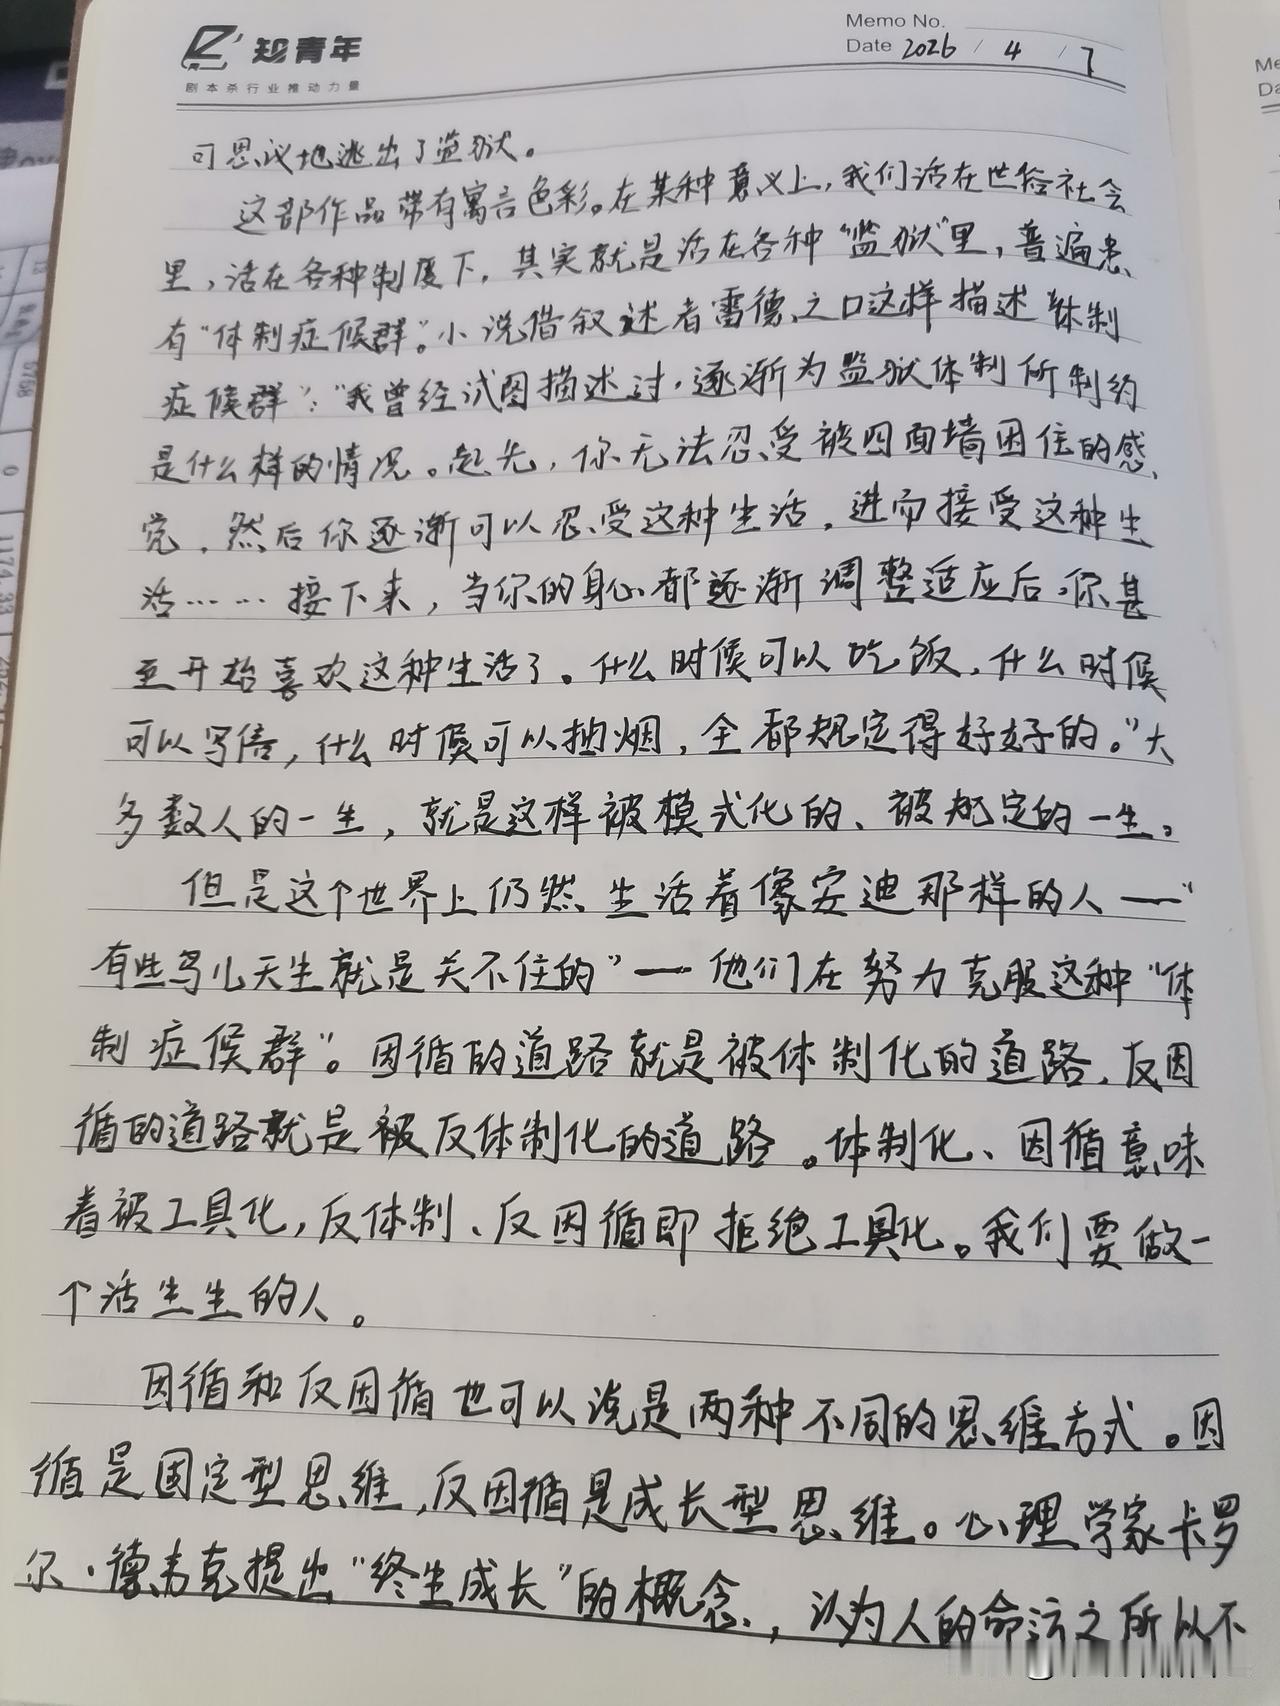 知青年
剧本杀行业推动力量
Memo No.
Date 2026 / 4 / 7
可思议地逃出了监狱。
这部作品带有寓言色彩。在某种意义上，我们活在世俗社会
里，活在各种制度下，其实就是活在各种“监狱”里，普遍患
有“体制症候群”。小说借叙述者雷德之口这样描述“体制
症候群”：“我曾经试图描述过，逐渐为监狱体制所制约
是什么样的情况。起先，你无法忍受被四面墙困住的感
觉，然后你逐渐可以忍受这种生活，进而接受这种生
活……接下来，当你的身心都逐渐调整适应后，你甚
至开始喜欢这种生活了。什么时候可以吃饭，什么时候
可以写信，什么时候可以抽烟，全都规定得好好的。”大
多数人的一生，就是这样被模式化的、被规定的一生。
但是这个世界上仍然生活着像安迪那样的人——“
有些鸟儿天生就是关不住的”——他们在努力克服这种“体
制症候群”。因循的道路就是被体制化的道路，反因
循的道路就是被反体制化的道路。体制化、因循意味
着被工具化，反体制、反因循即拒绝工具化。我们要做一
个活生生的人。
因循和反因循也可以说是两种不同的思维方式。因
循是固定型思维，反因循是成长型思维。心理学家卡罗
尔·德韦克提出“终生成长”的概念，认为人的命运之所以不